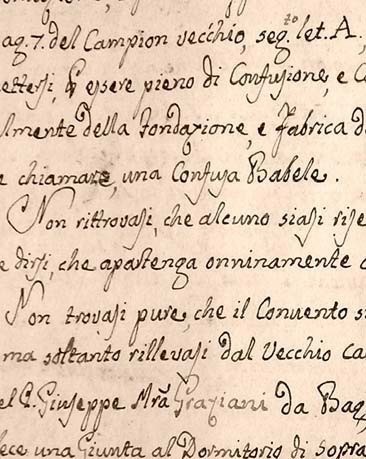 ag. 7. del Campion vecchio, seg.to let. A.
ettersi, essere pieno di Confusione, e C
lmente della fondazione, e fabrica d
e chiamare, una Confusa Babele.
Non rittrovasi, che alcuno siasi rise
e dirsi, che apartenga onninamente
Non trovasi pure, che il Convento s
ma soltanto rillevasi dal Vecchio Ca
el P. Giuseppe Mra Graziani da Bag
ece una Giunta al Dormitorio di sopra